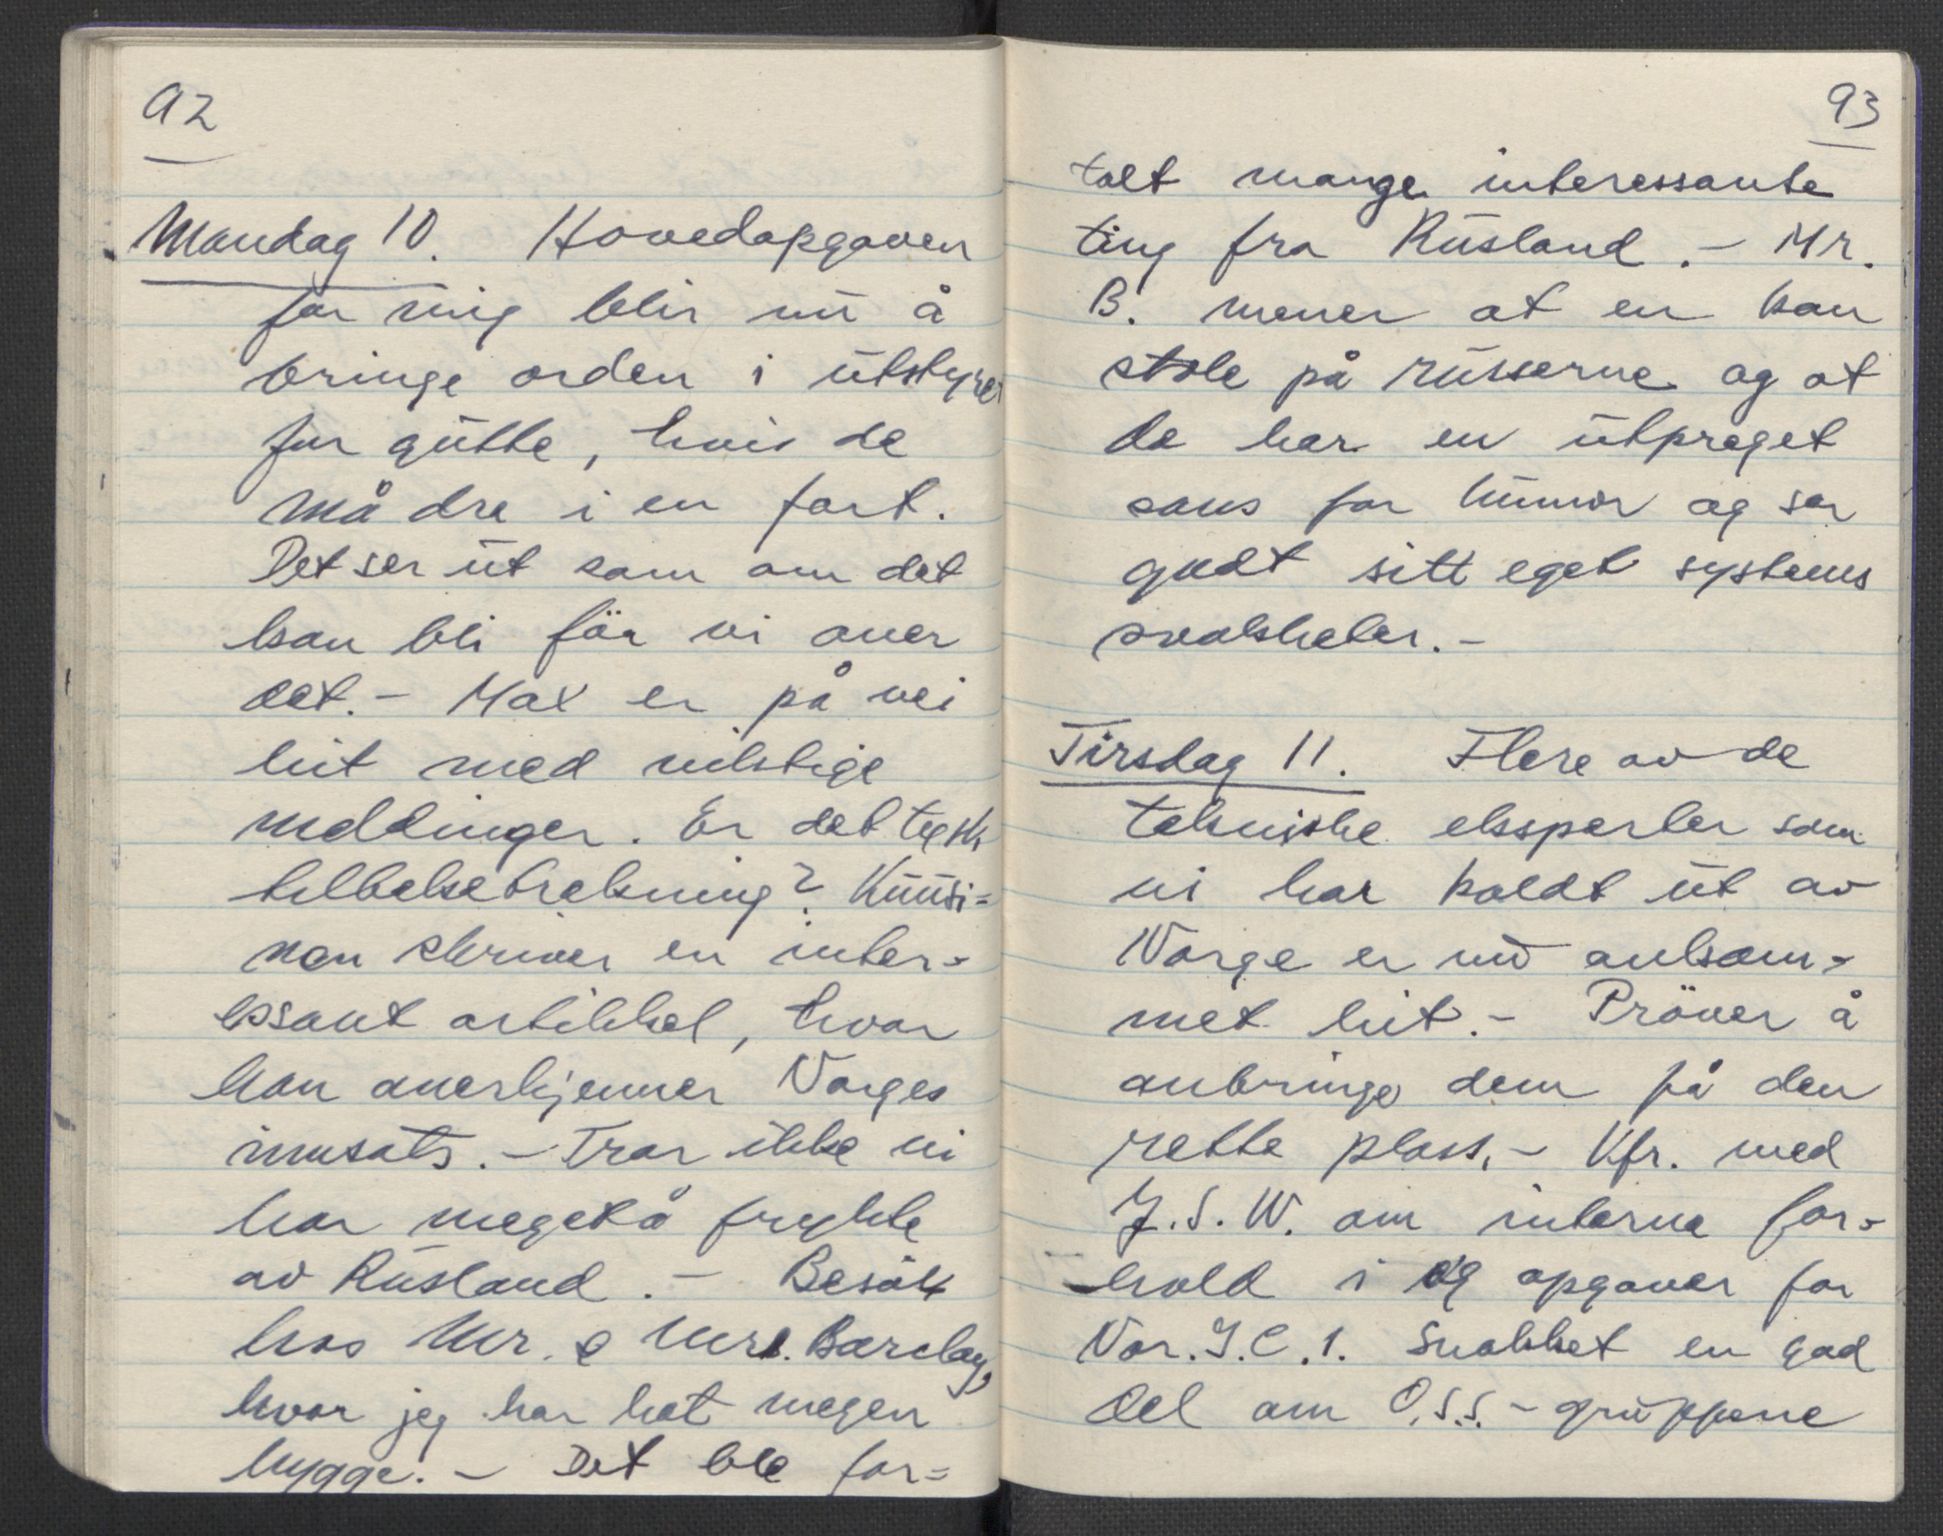 92
Mandag 10. Hovedopgaven
for mig blir nu å
bringe orden i utstyret
for gutte, hvis de
må dra i en fart.
Det ser ut som om det
kan bli för vi aner
det. - Max er på vei
hit med viktige
meldinger. Er det tysk
tilbaketrekning? Kuusi=
nen skriver en inter=
essant artikkel, hvor
han anerkjenner Norges
innsats. - Tror ikke vi
har meget å frykte
av Rusland. - Besök
hos Mr. & Mrs. Barclay,
hvor jeg har hat megen
hygge. - Det ble for=
93
talt mange interessante
ting fra Rusland. - Mr.
B. mener at en kan
stole på russerne og at
de har en utpreget
sans for humor og ser
godt sitt eget systems
svakheter. -
Tirsdag 11. Flere av de
tekniske eksperter som
vi har kaldt ut av
Norge er nu ankom=
met hit. - Pröver å
anbringe dem på den
rette plass. - Kfr. med
J.S.W. om interne for=
hold i og opgaver for
Nor.I.C.1. Snakket en god
del om O.S.S. - gruppene